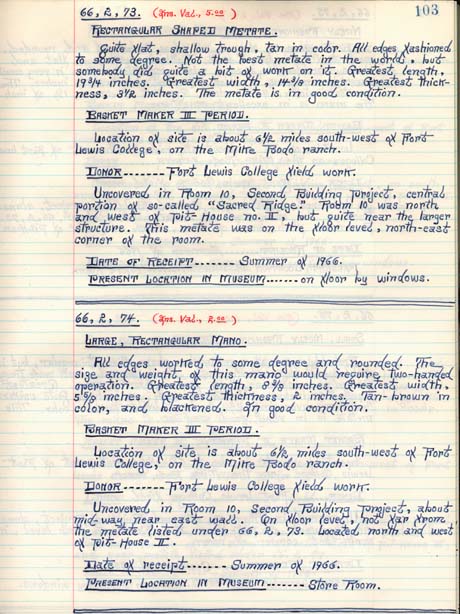 103
66, 2, 73. (Ins. Val., 5.00)
RECTANGULAR SHAPED METATE.
Quite flat, shallow trough, tan in color. All edges fashioned
to some degree. Not the best metate in the world, but
somebody did quite a bit of work on it. Greatest length,
19 3/4 inches. Greatest width, 14 inches. Greatest thick-
ness, 3 1/2 inches. The metate is in good condition.
BASKET MAKER III PERIOD.
Location of site is about 6 1/2 miles south-west of Fort
Lewis College, on the Mike Bodo ranch.
DONOR------- Fort Lewis College field work.
Uncovered in Room 10, Second Building Project, central
portion of so-called "Sacred Ridge." Room 10 was north
and west of Pit-House no. II, but quite near the larger
structure. This metate was on the floor level, north-east
corner of the room.
DATE OF RECEIPT------- Summer of 1966.
PRESENT LOCATION IN MUSEUM------- on floor by windows.
66, 2, 74. (Ins. Val., 2.00)
LARGE, RECTANGULAR MANO.
All edges worked to some degree and rounded. The
size and weight of this mano would require two-handed
operation. Greatest length, 8 inches. Greatest width,
5 inches. Greatest thickness, 2 inches. Tan-brown in
color, and blackened. In good condition.
BASKET MAKER III PERIOD.
Location of site is about 6 1/2 miles south-west of Fort
Lewis College, on the Mike Bodo ranch.
DONOR------- Fort Lewis College field work.
Uncovered in Room 10, Second Building Project, about
mid-way near east wall. On floor level, not far from
the metate listed under 66, 2, 73. Located north and west
of Pit-House II.
Date of receipt------- Summer of 1966.
PRESENT LOCATION IN MUSEUM------- Store Room.